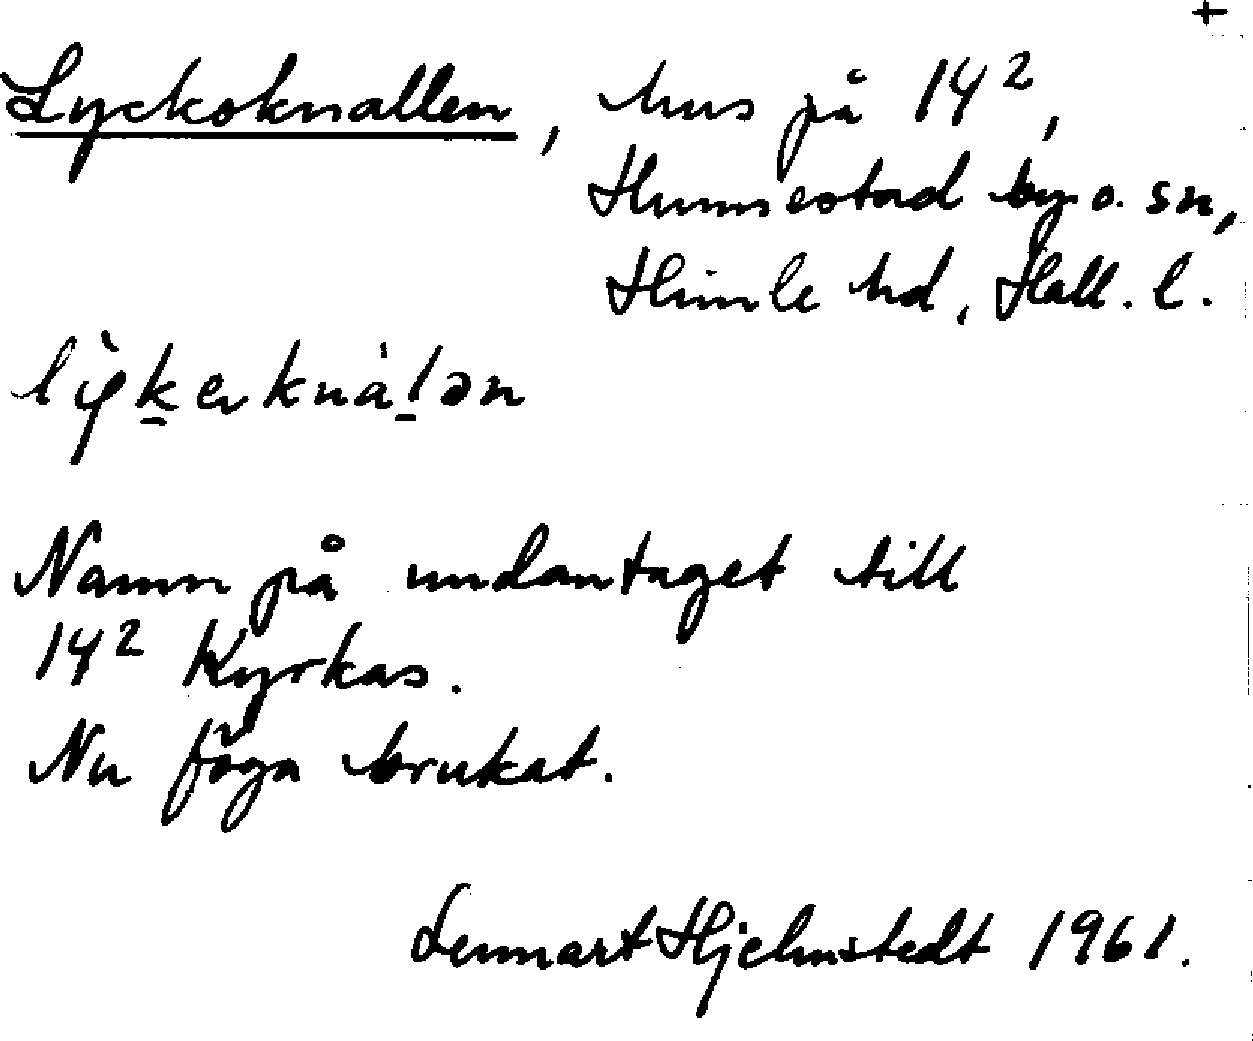 +
Lyckoknallen, hus på 14²,
Hunnestad by o. sn,
Himle hd, Hall. l.
lỳk̲erknàl̲ən
Namn på undantaget till
14² Kyrkas.
Nu föga brukat.
Lennart Hjelmstedt 1961.